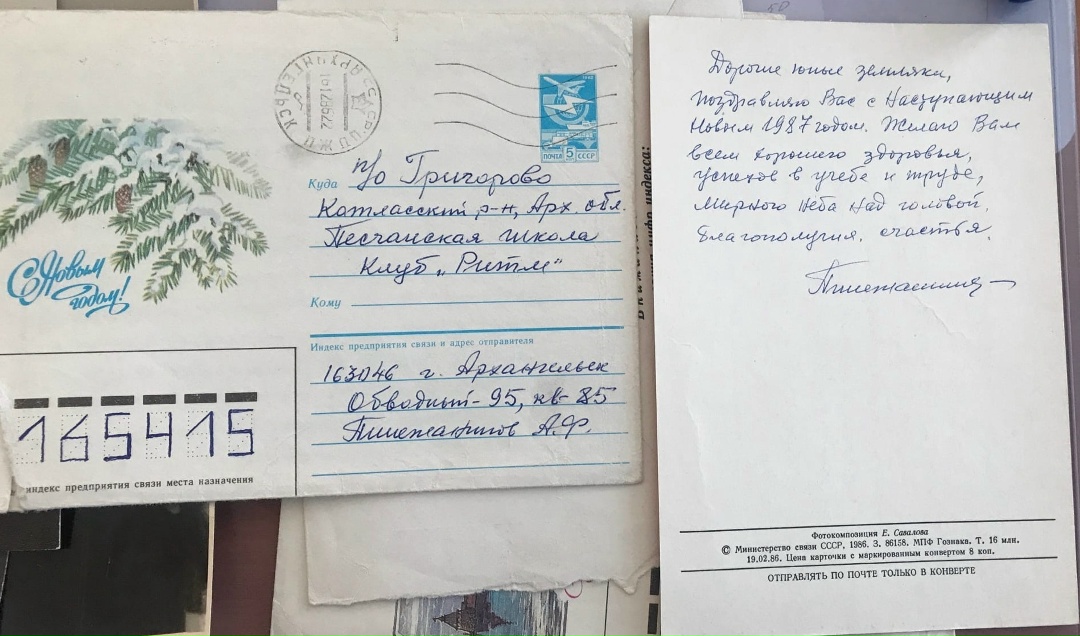 С Новым
годом!
АРХАНГЕЛЬСК
СССР
ПОЧТА 5 СССР
Куда п/о Григорово
Котласский р-н, Арх. обл.
Песчанская школа
Клуб „Ритм"
Кому
Индекс предприятия связи и адрес отправителя
163046 г. Архангельск
Обводный - 95, кв - 85
А.Ф.
165415
индекс предприятия связи места назначения
Дорогие юные земляки,
поздравляю Вас с Наступающим
Новым 1987 годом. Желаю Вам
всем хорошего здоровья,
успехов в учебе и труде,
мирного неба над головой,
благополучия, счастья.
Фотокомпозиция Е. Савалова
© Министерство связи СССР, 1986. З. 86158. МПФ Гознака. Т. 16 млн.
19.02.86. Цена карточки с маркированным конвертом 8 коп.
ОТПРАВЛЯТЬ ПО ПОЧТЕ ТОЛЬКО В КОНВЕРТЕ